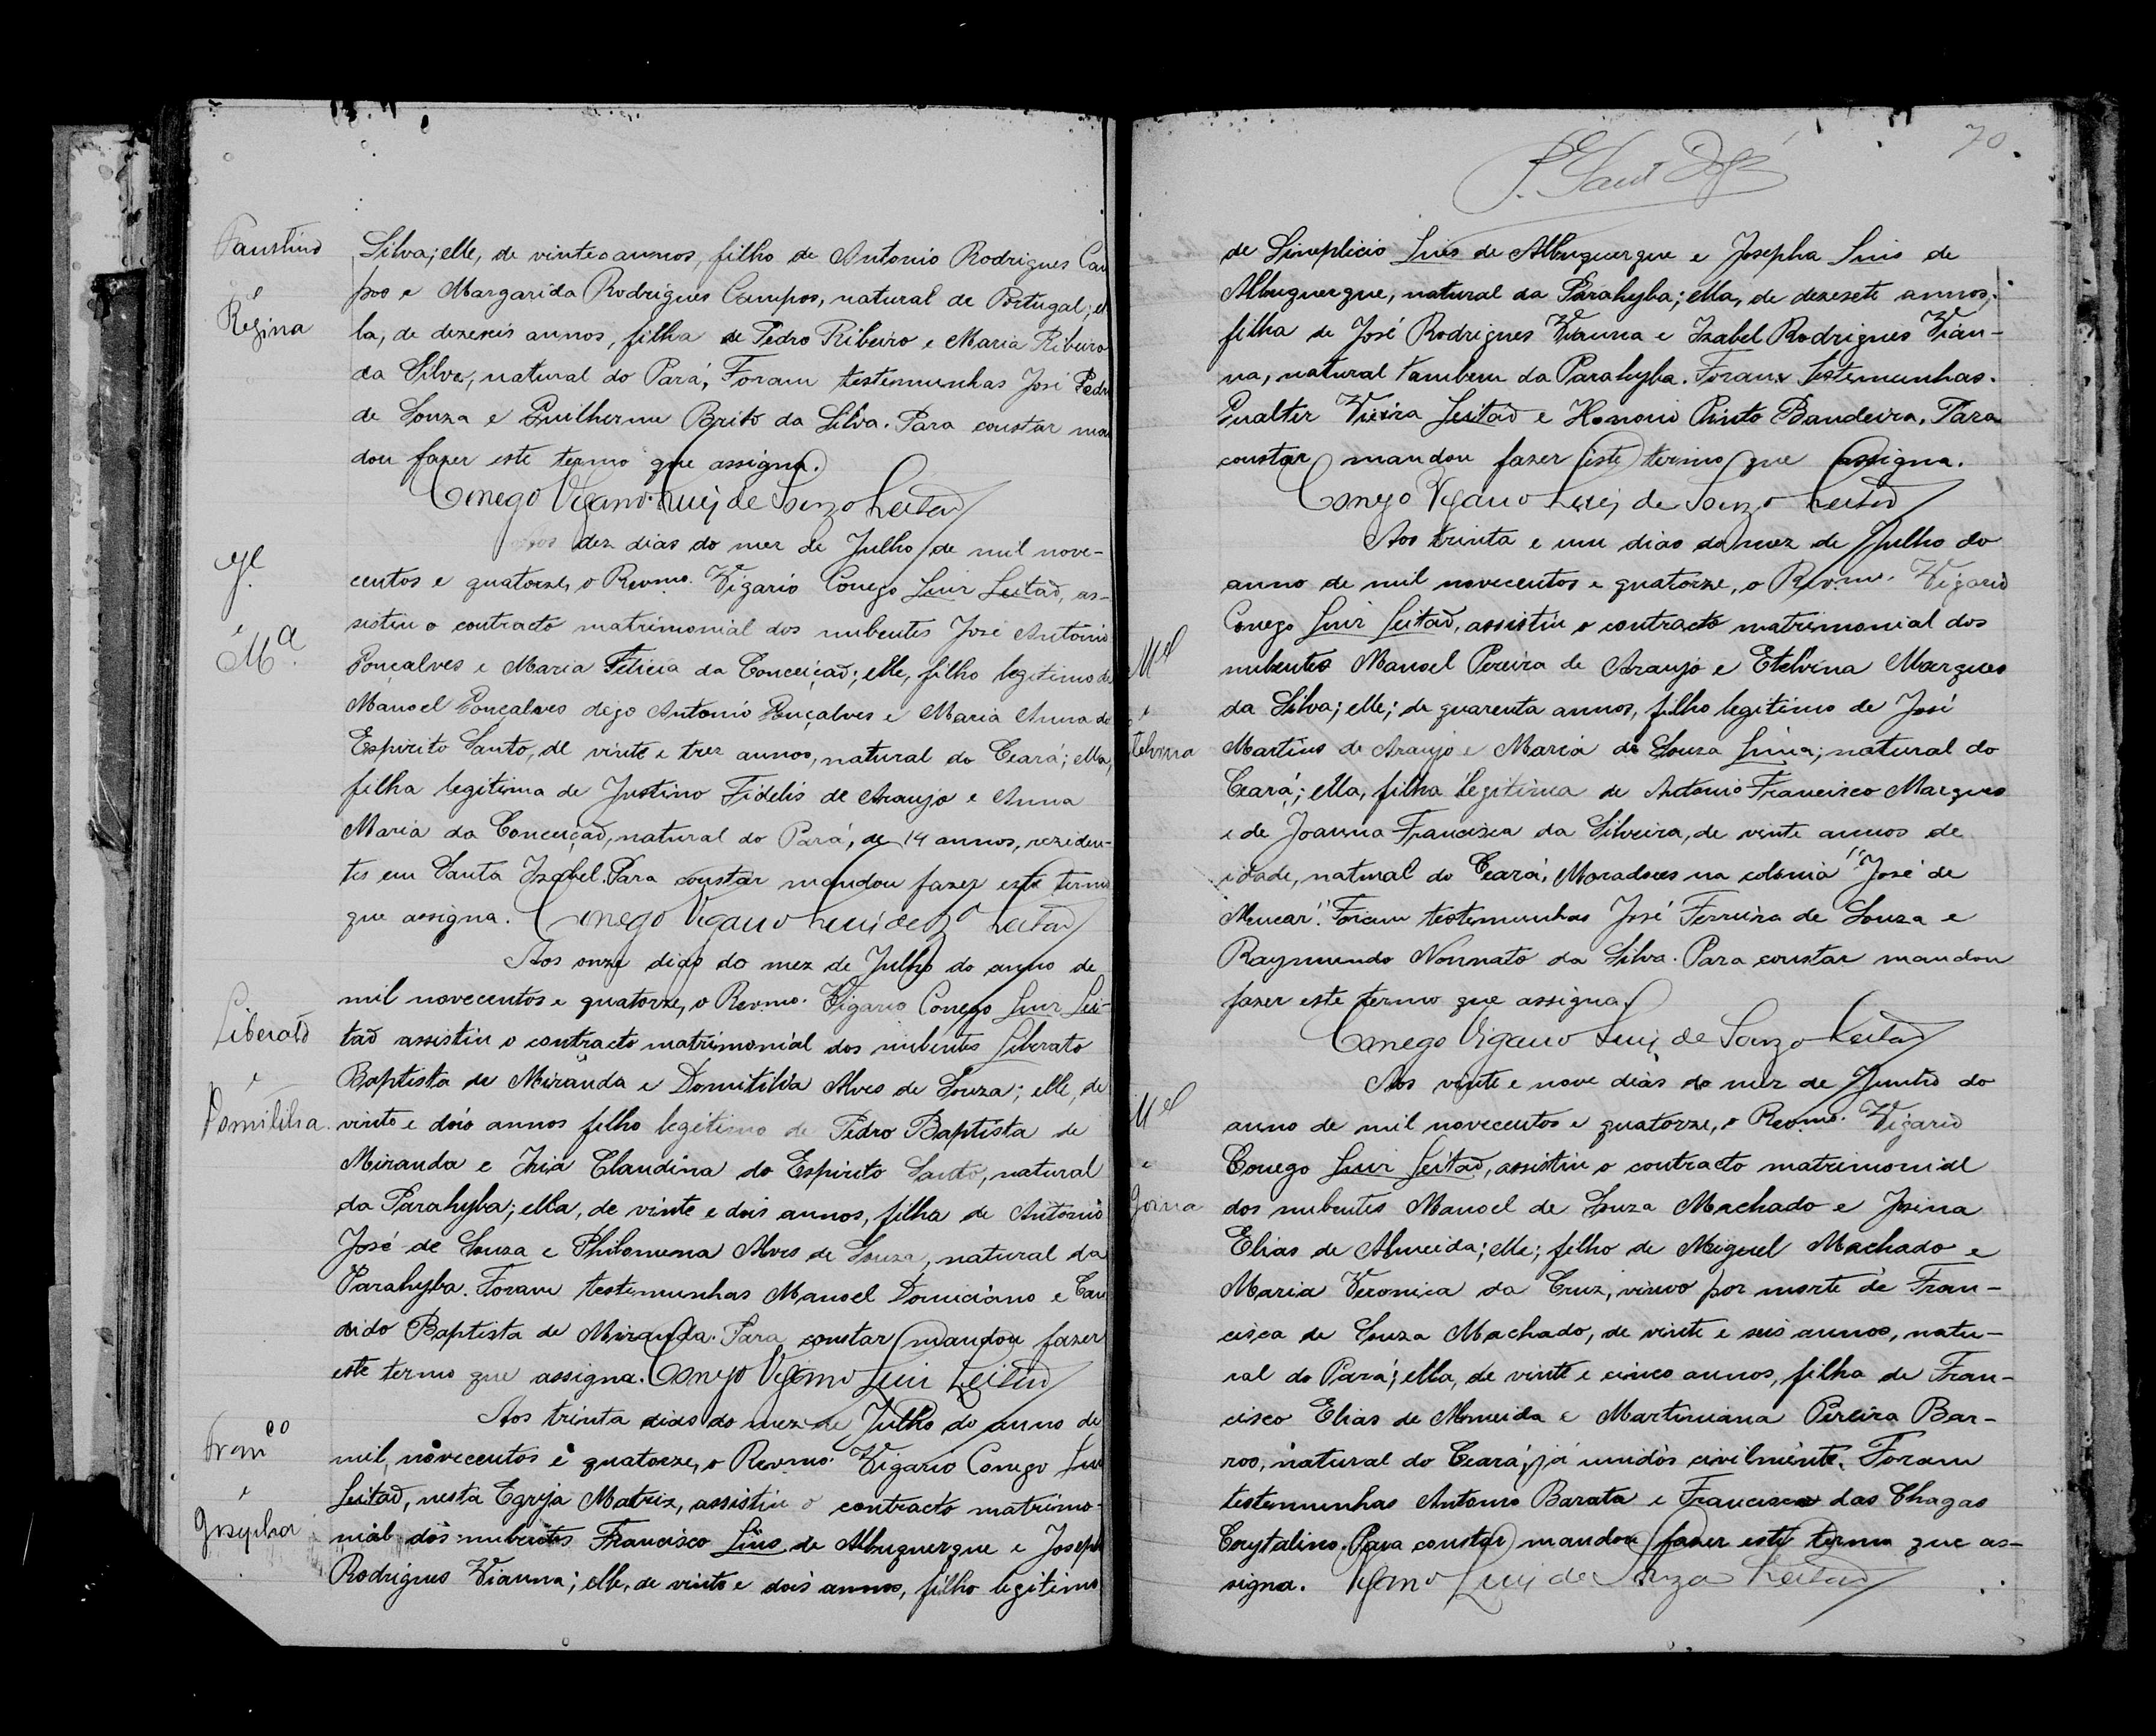 Faustino
e
Regina
Silva; elle, de vinte annos, filho de Antonio Rodrigues Cam
pos e Margarida Rodrigues Campos, natural de Portugal; el
la, de dezeseis annos, filha de Pedro Ribeiro e Maria Ribeiro
da Silva, natural do Pará, Foram testemunhas José Pedro
de Souza e Guilherme Brito da Silva. Para constar man
dou fazer este termo que assigna.
Conego Vigario Luiz de Souza Leitão
Aos dez dias do mez de Julho de mil nove-
centos e quatorze, o Revmo. Vigario Conego Luiz Leitão, as-
sistiu o contracto matrimonial dos nubentes José Antonio
Gonçalves e Maria Felicia da Conceição; elle, filho legitimo de
Manoel Gonçalves digo Antonio Gonçalves e Maria Anna do
Espirito Santo, de vinte e trez annos, natural do Ceará; ella,
filha legitima de Justino Fidelis de Araujo e Anna
Maria da Conceição, natural do Pará, de 14 annos, reziden-
tes em Santa Izabel. Para constar mandou fazer este termo
que assigna. Conego Vigario Luiz de Leitão
J.e
e
M.a
Aos onze dias do mez de Julho do anno de
mil novecentos e quatorze, o Revmo. Vigario Conego Luiz Lei-
tão assistiu o contracto matrimonial dos nubentes Liberato
Baptista de Miranda e Domitilia Alves de Souza; elle, de
vinte e dois annos filho legitimo de Pedro Baptista de
Miranda e Iria Claudina do Espirito Santo, natural
da Parahyba; ella, de vinte e dois annos, filha de Antonio
José de Souza e Philomena Alves de Souza, natural da
Parahyba. Foram testemunhas Manoel Domiciano e Can
dido Baptista de Miranda. Para constar mandou fazer
este termo que assigna. Conego Vigario Luiz Leitão
Liberato
e
Domitilia
Aos trinta dias do mez de Julho do anno de
mil, novecentos e quatorze, o Revmo. Vigario Conego Luiz
Leitão, nesta Egreja Matriz, assistiu o contracto matrimo-
nial dos nubentes Francisco Luis de Albuquerque e Joseph
Rodrigues Vianna; elle, de vinte e dois annos, filho legitimo
Franco
e
Josepha
70.
de Simplicio Luis de Albuquerque e Josepha Luis de
Albuquerque, natural da Parahyba; ella, de dezesete annos,
filha de José Rodrigues Vianna e Izabel Rodrigues Vian-
na, natural tambem da Parahyba. Foram testemunhas.
Gualter Vieira Leitão e Honorio Pinto Bandeira. Para
constar mandou fazer este termo que assigna.
Conego Vigario Luiz de Souza Leitão
Aos trinta e um dias do mez de Julho do
anno de mil novecentos e quatorze, o Revmo. Vigario
Conego Luiz Leitão, assistiu o contracto matrimonial dos
nubentes Manoel Pereira de Araujo e Etelvina Marques
da Silva; elle; de quarenta annos, filho legitimo de José
Martins de Araujo e Maria de Souza Lima; natural do
Ceará; ella, filha legitima de Antonio Francisco Marques
e de Joanna Francisca da Silveira, de vinte annos de
idade, natural do Ceará, Moradores na colonia "José de
Alencar". Foram testemunhas José Ferreira de Souza e
Raymundo Nonnato da Silva. Para constar mandou
fazer este termo que assigna.
Conego Vigario Luiz de Souza Leitão
Mel
e
telvina
Aos vinte e nove dias do mez de Junho do
anno de mil novecentos e quatorze, o Revmo. Vigario
Conego Luiz Leitão, assistiu o contracto matrimonial
dos nubentes Manoel de Souza Machado e Josina
Elias de Almeida; elle; filho de Miguel Machado e
Maria Veronica da Cruz, viuvo por morte de Fran-
cisca de Souza Machado, de vinte e seis annos, natu-
ral do Pará; ella, de vinte e cinco annos, filha de Fran-
cisco Elias de Almeida e Martiniana Pereira Bar-
ros, natural do Ceará, já unidos civilmente. Foram
testemunhas Antonio Barata e Francisco das Chagas
Crystalino. Para constar mandou fazer este termo que as-
signa. Vigario Luiz de Souza Leitão
Mel
e
Josina